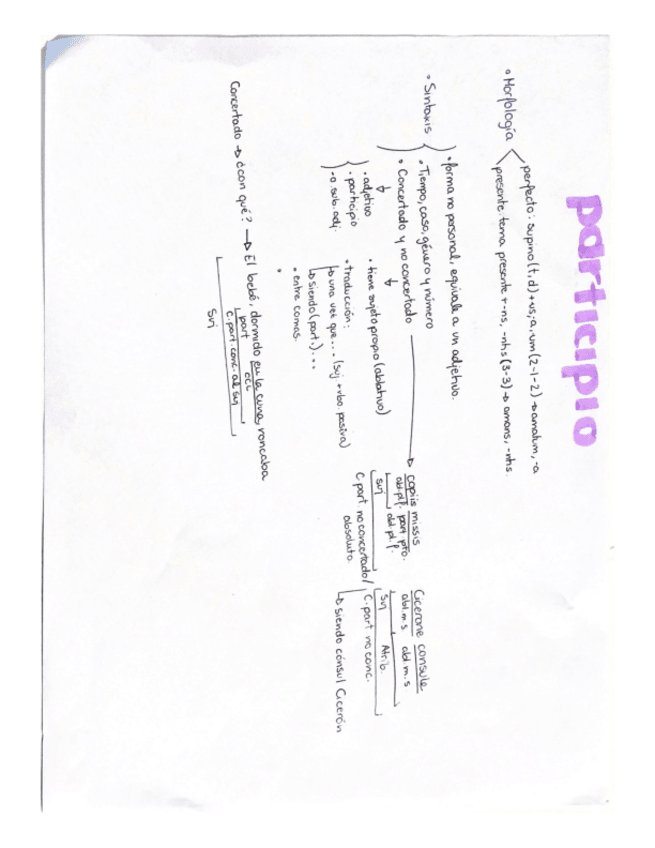 participio
• Morfología
perfecto: supino (t, d) + us, -a, um (2-1-2) → amatum, -a
presente: tema presente + -ns, -ntis (3-3) → amans, -ntis
• Sintaxis
• forma no personal, equivale a un adjetivo.
• Tiempo, caso, género y número
• Concertado y no concertado
• adjetivo
• participio
• o sub. adj.
• tiene sujeto propio (ablativo)
• Traducción:
↳ una vez que... (suj + vbo pasiva)
↳ siendo (part.)...
• entre comas.
copiis missis
abl.pl.f. part. pto.
abl.pl.f.
suj
C. part. no concertado/
absoluto.
Cicerone consule
abl.m.s abl.m.s
Suj Atrib.
C. part no conc.
↳ siendo cónsul Cicerón
Concertado → ¿con qué? → El bebé, dormido en la cuna, roncaba
part ccl
C. part. conc. al suj
Suj